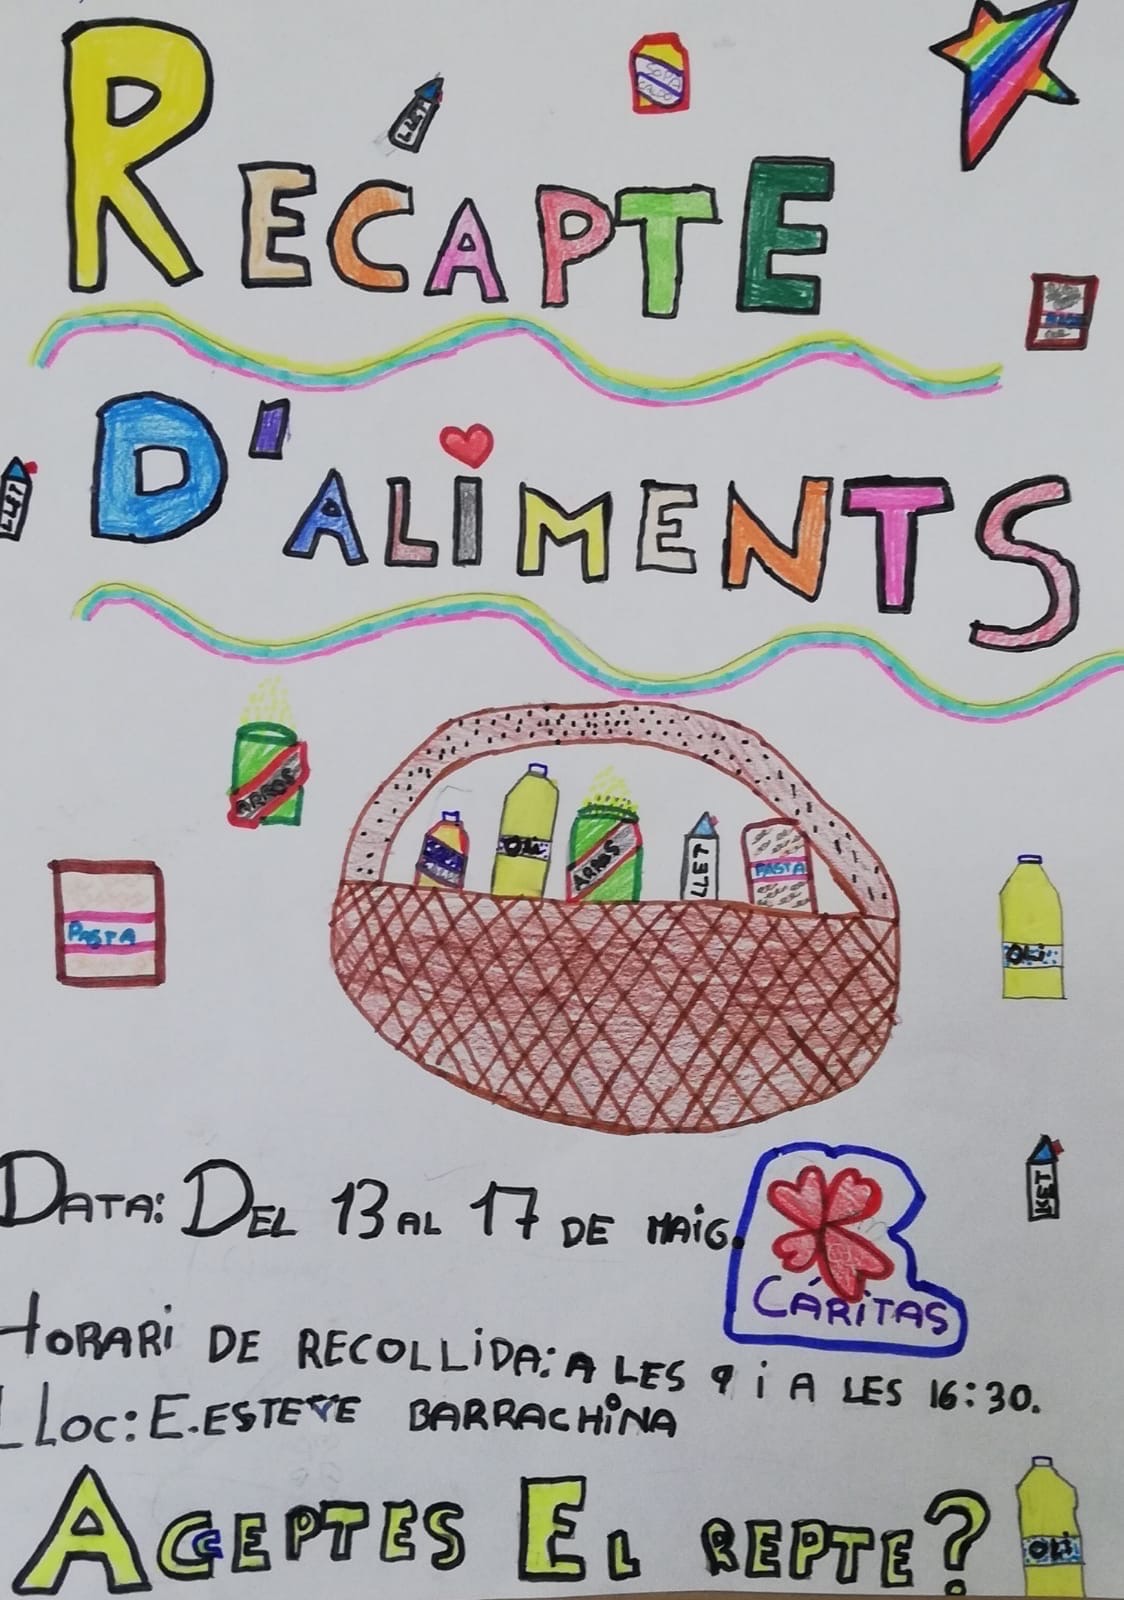 LLET
SOPA
CALDO
RECAPTE
D'ALIMENTS
LLET
ARROS
OLi
ARROS
LLET
PASTA
PASTA
OLi
LLET
DATA: DEL 13 AL 17 DE MAiG.
CÁRiTAS
HORARi DE RECOLLiDA: A LES 9 i A LES 16:30.
LLOC: E.ESTEVE BARRACHiNA
ACCEPTES EL REPTE?
OLi